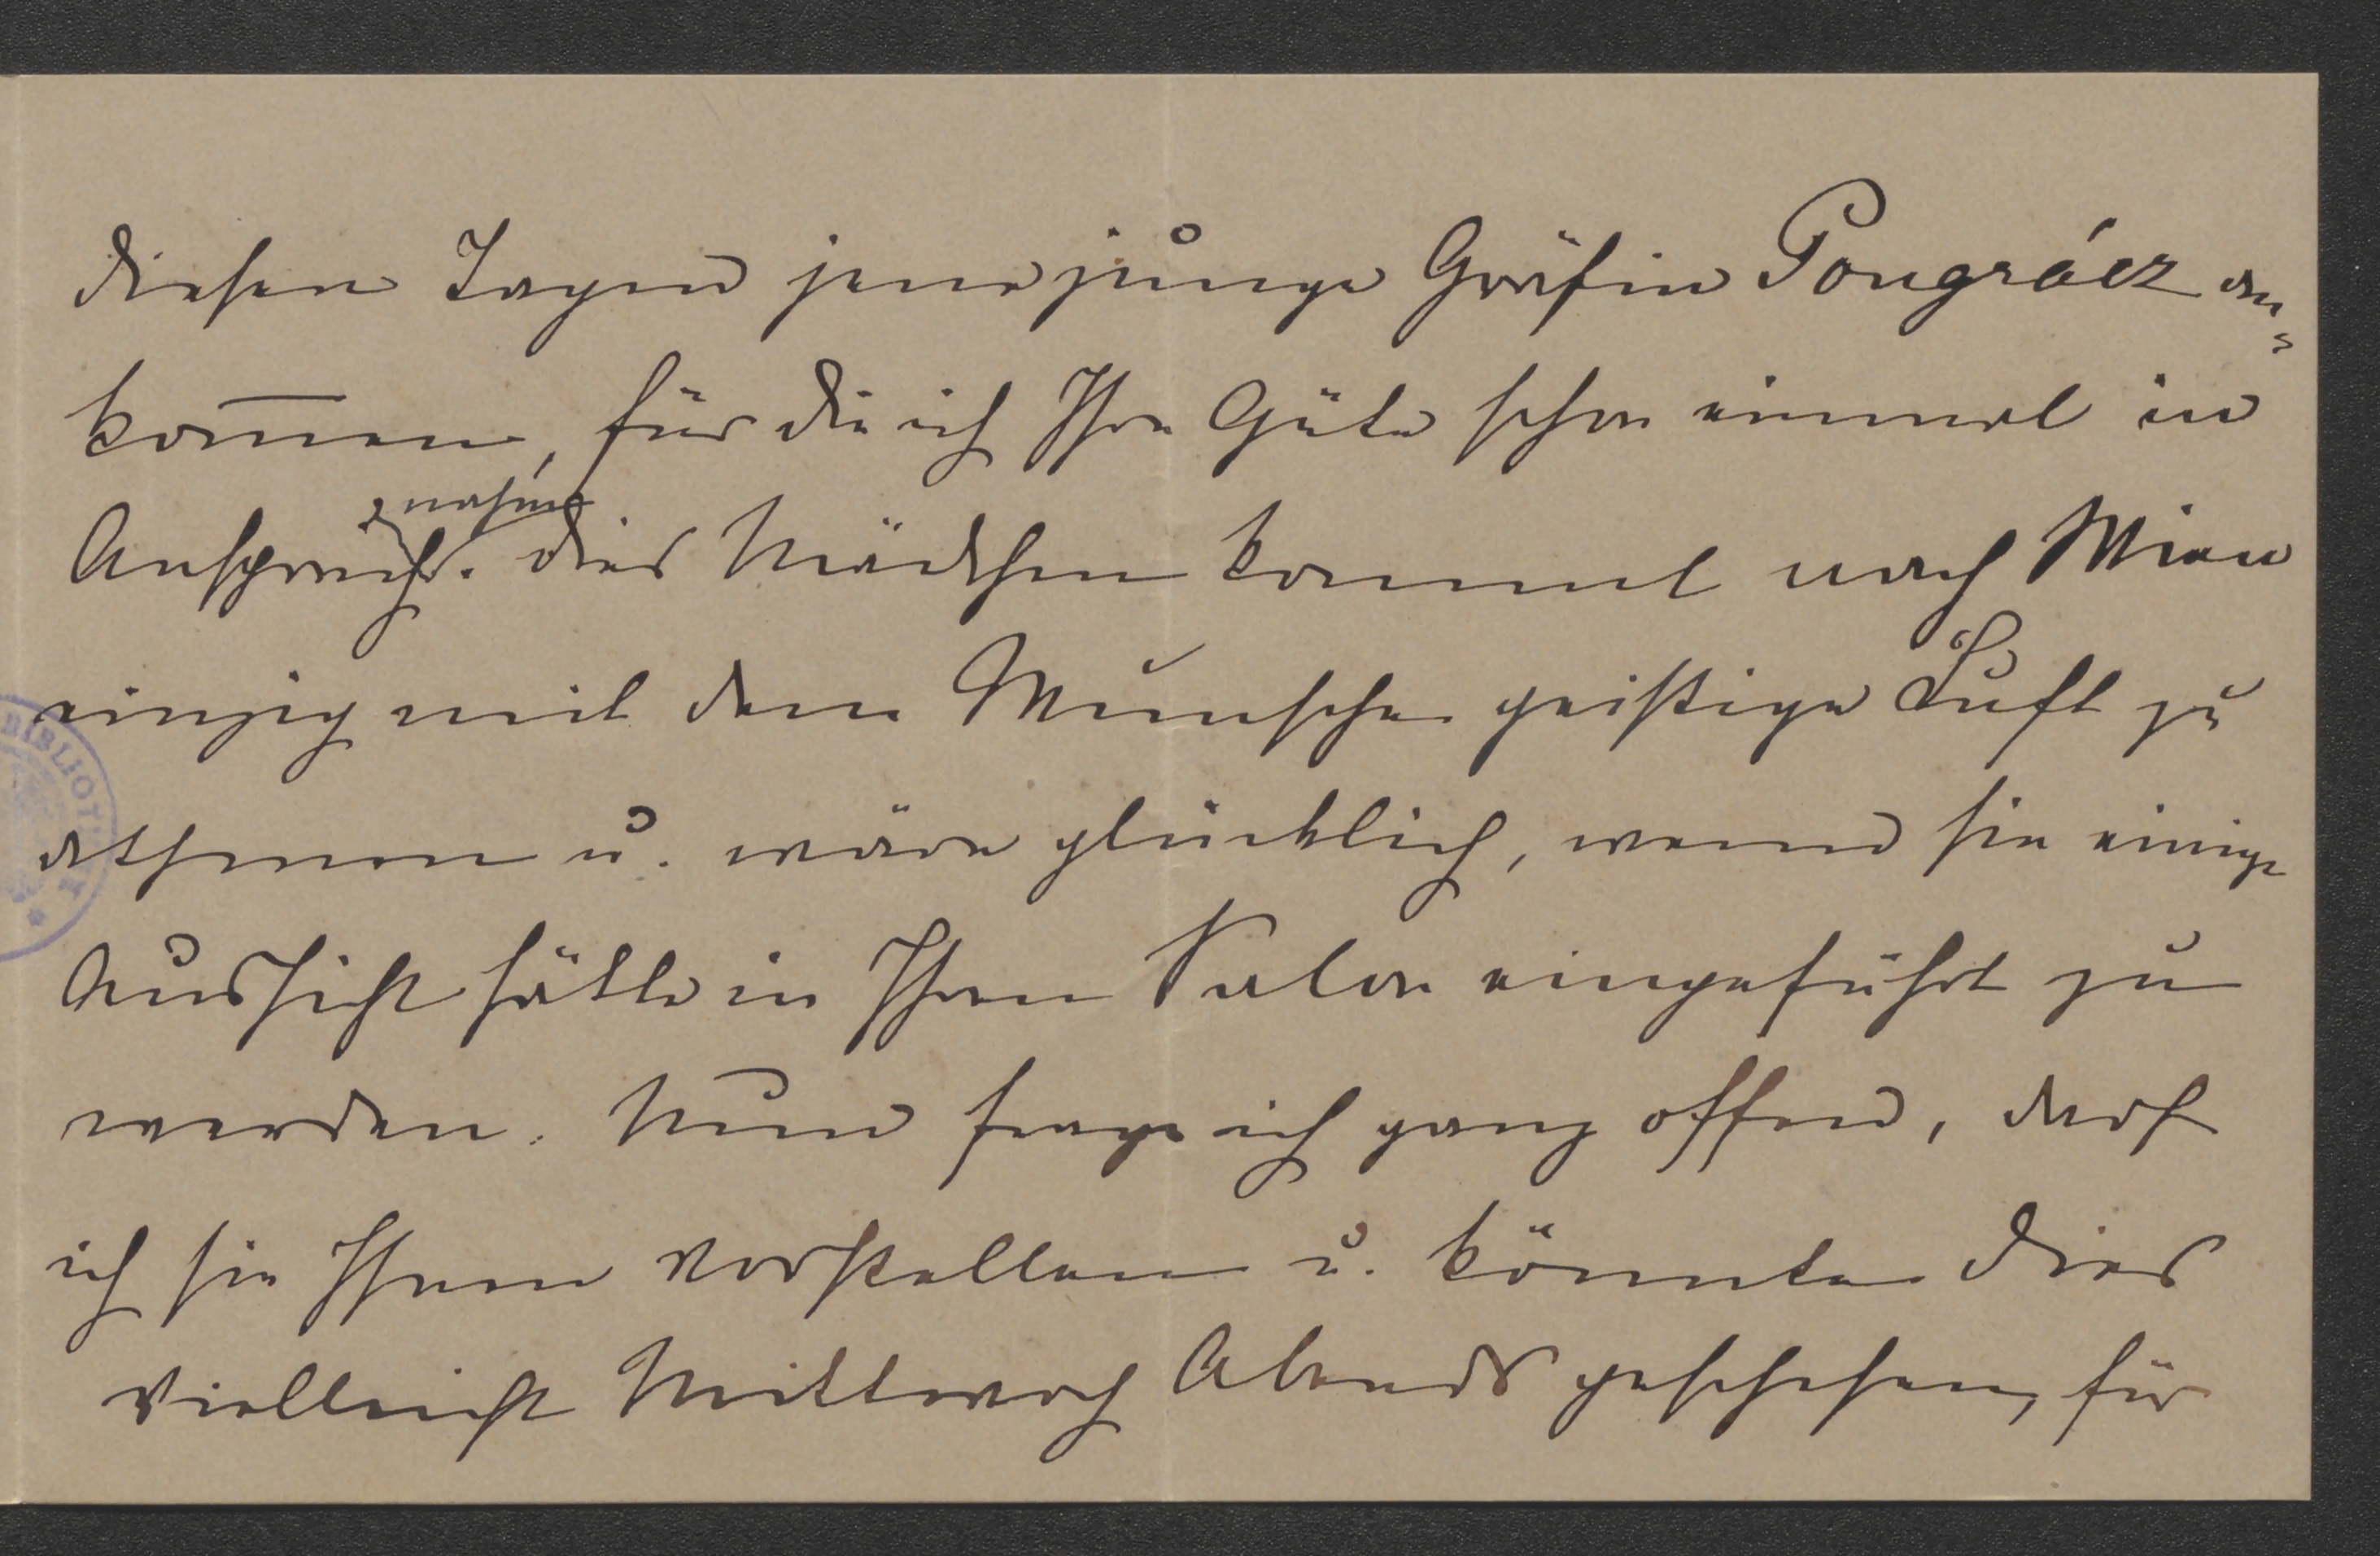 diesen Tagen jene junge Gräfin Pongrácz an=
kom̅en, für die ich Ihre Güte schon einmal in
Anspruch nahm. Dies Mädchen kommt nach Wien
einzig mit dem Wunsche geistige Luft zu
athmen u. wäre glücklich, wenn sie einige
Aussicht hätte in Ihren Salon eingeführt zu
werden. Nun frage ich ganz offen, darf
ich sie Ihnen vorstellen u. könnte dies
vielleicht Mittwoch Abends geschehen, für
BIBLIOT